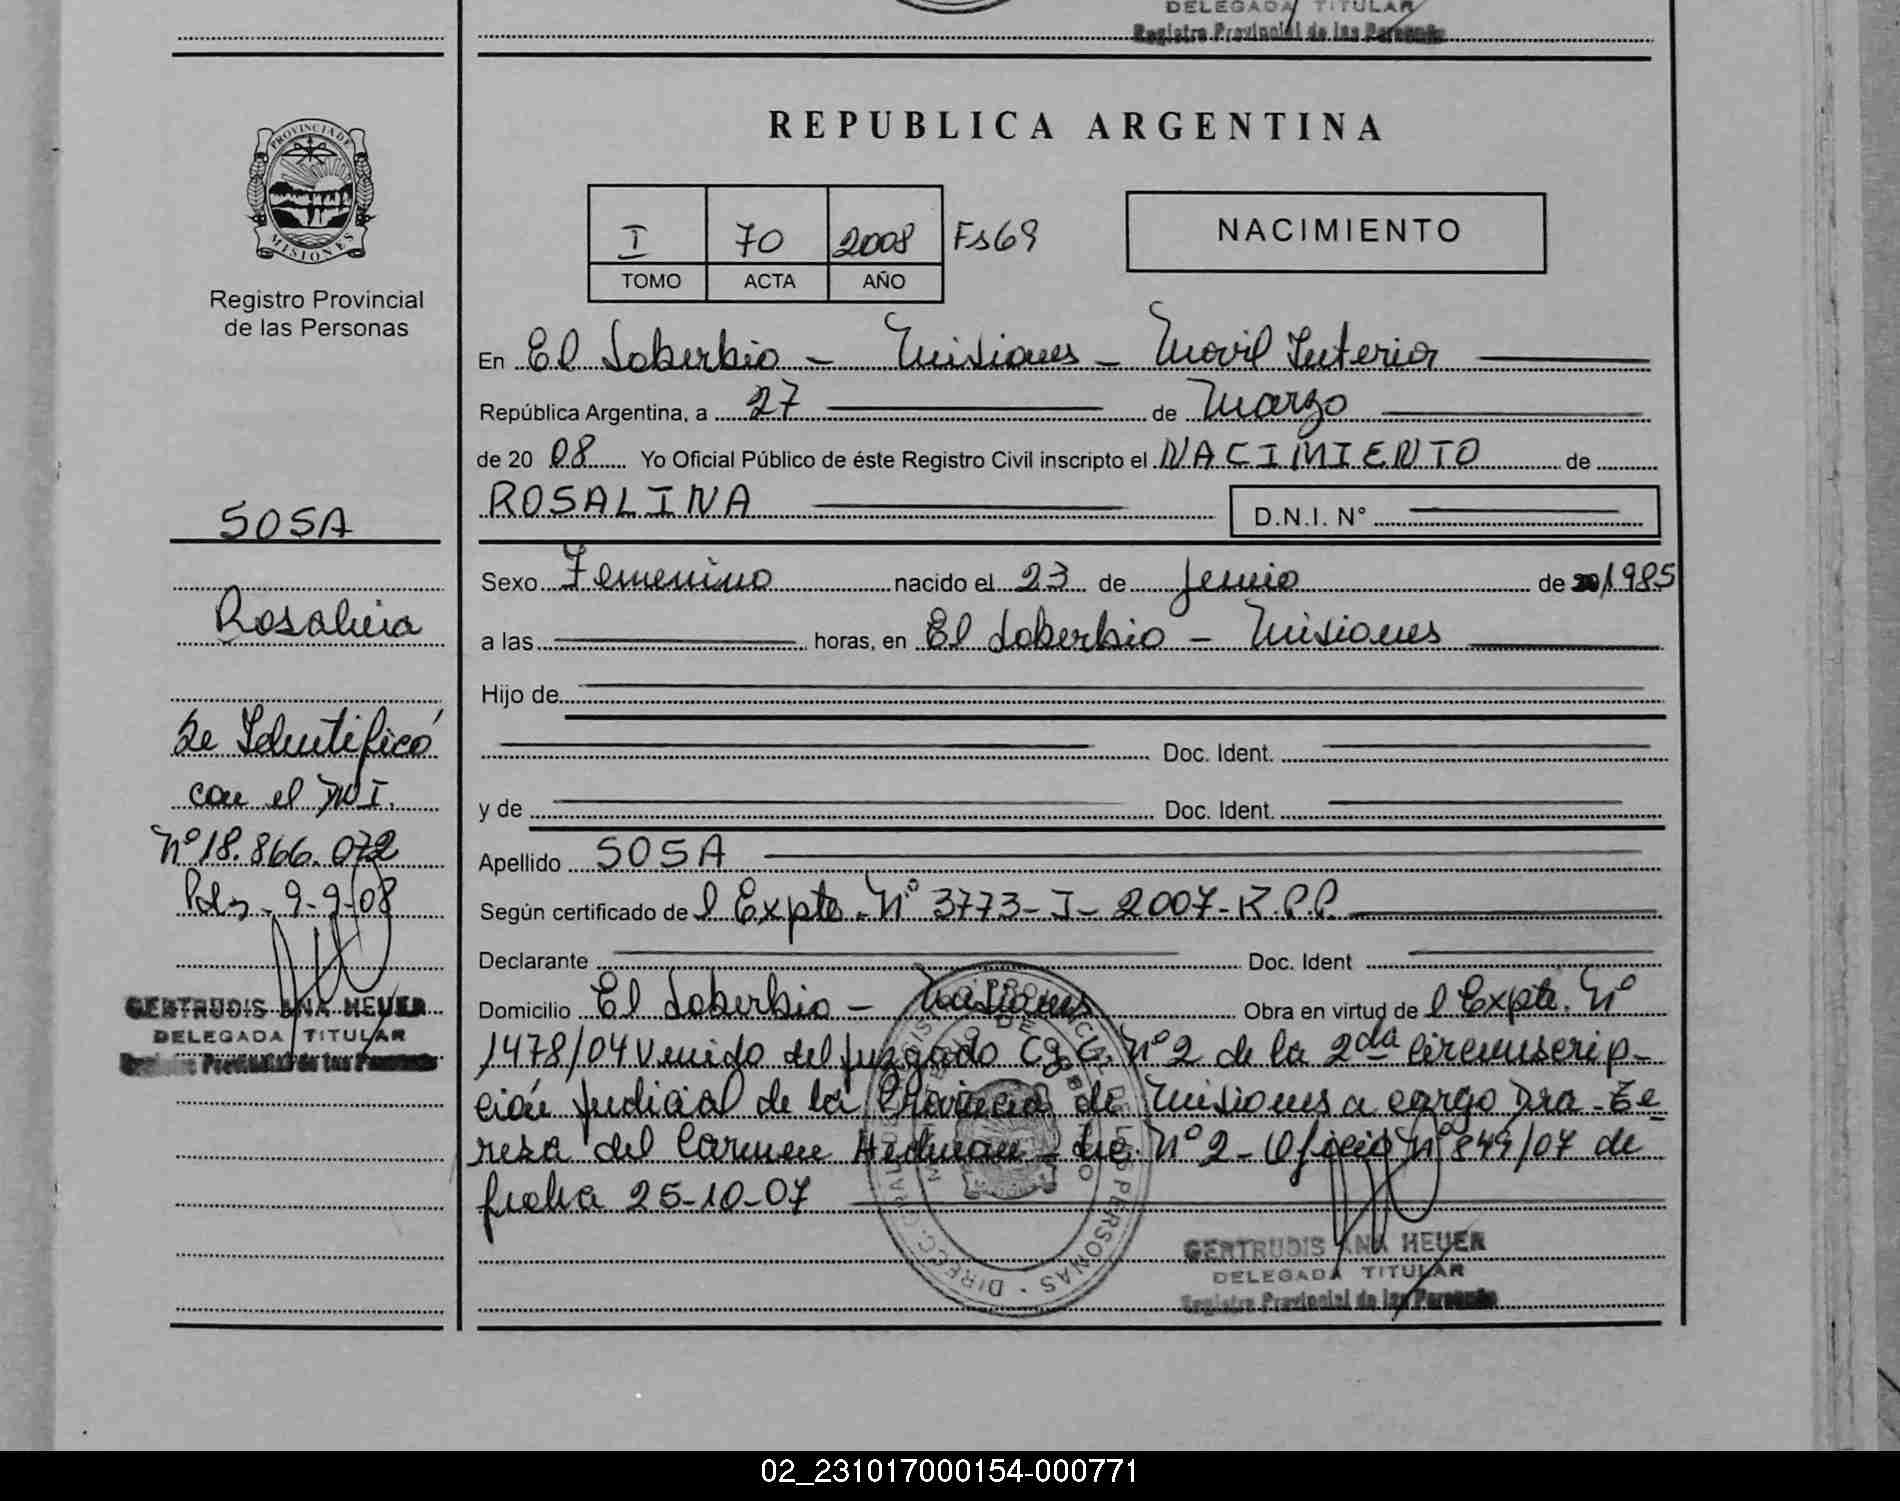 DELEGADA TITULAR
Registro Provincial de las Personas
PROVINCIA DE
MISIONES
Registro Provincial
de las Personas
REPUBLICA ARGENTINA
I 70 2008 Fs69
TOMO ACTA AÑO
NACIMIENTO
En El Soberbio - Misiones - Movil Interior
República Argentina, a 27 de Marzo
de 20 08 Yo Oficial Público de éste Registro Civil inscripto el NACIMIENTO de
ROSALINA D.N.I. N°
Sexo Femenino nacido el 23 de Junio de 20 1985
a las horas, en El Soberbio - Misiones
Hijo de
Doc. Ident.
y de Doc. Ident.
Apellido SOSA
Según certificado de l Expte. N° 3773-I-2007-R.P.P.
Declarante Doc. Ident
Domicilio El Soberbio - Misiones Obra en virtud de l Expte. N°
1478/04 Venido del Juzgado C y C. N°2 de la 2da Circunscrip-
ción Judicial de la Provincia de Misiones a cargo Dra. Te-
resa del Carmen Sec. N°2 - Oficio N° 849/07 de
fecha 25-10-07
GERTRUDIS ANA HEUER
DELEGADA TITULAR
Registro Provincial de las Personas
SOSA
Rosalina
Se Identificó
con el DNI.
N° 18.866.072
Pds. 9-9-08
GERTRUDIS ANA HEUER
DELEGADA TITULAR
Registro Provincial de las Personas
02_231017000154-000771